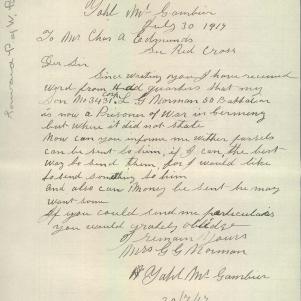 Yahl Mt Gambier
July 30 1917
To Mr Chas A Edmunds
Sec Red Cross
Dear Sir
Since writing you I have received
word from Head quarters that my
Son No 3431 Corp L G Morman 50 Battalion
is now a Prisoner of War in Germany
but where it did not state
Now can you inform me wither parcels
can be sent to him, if I can the best
way to send them, for I would like
to send something to him
and also can money be sent he may
want some
If you could send me particulars
you would grately obledge
I remain Yours
Mrs G G Morman
Yahl Mt Gambier
30/7/17